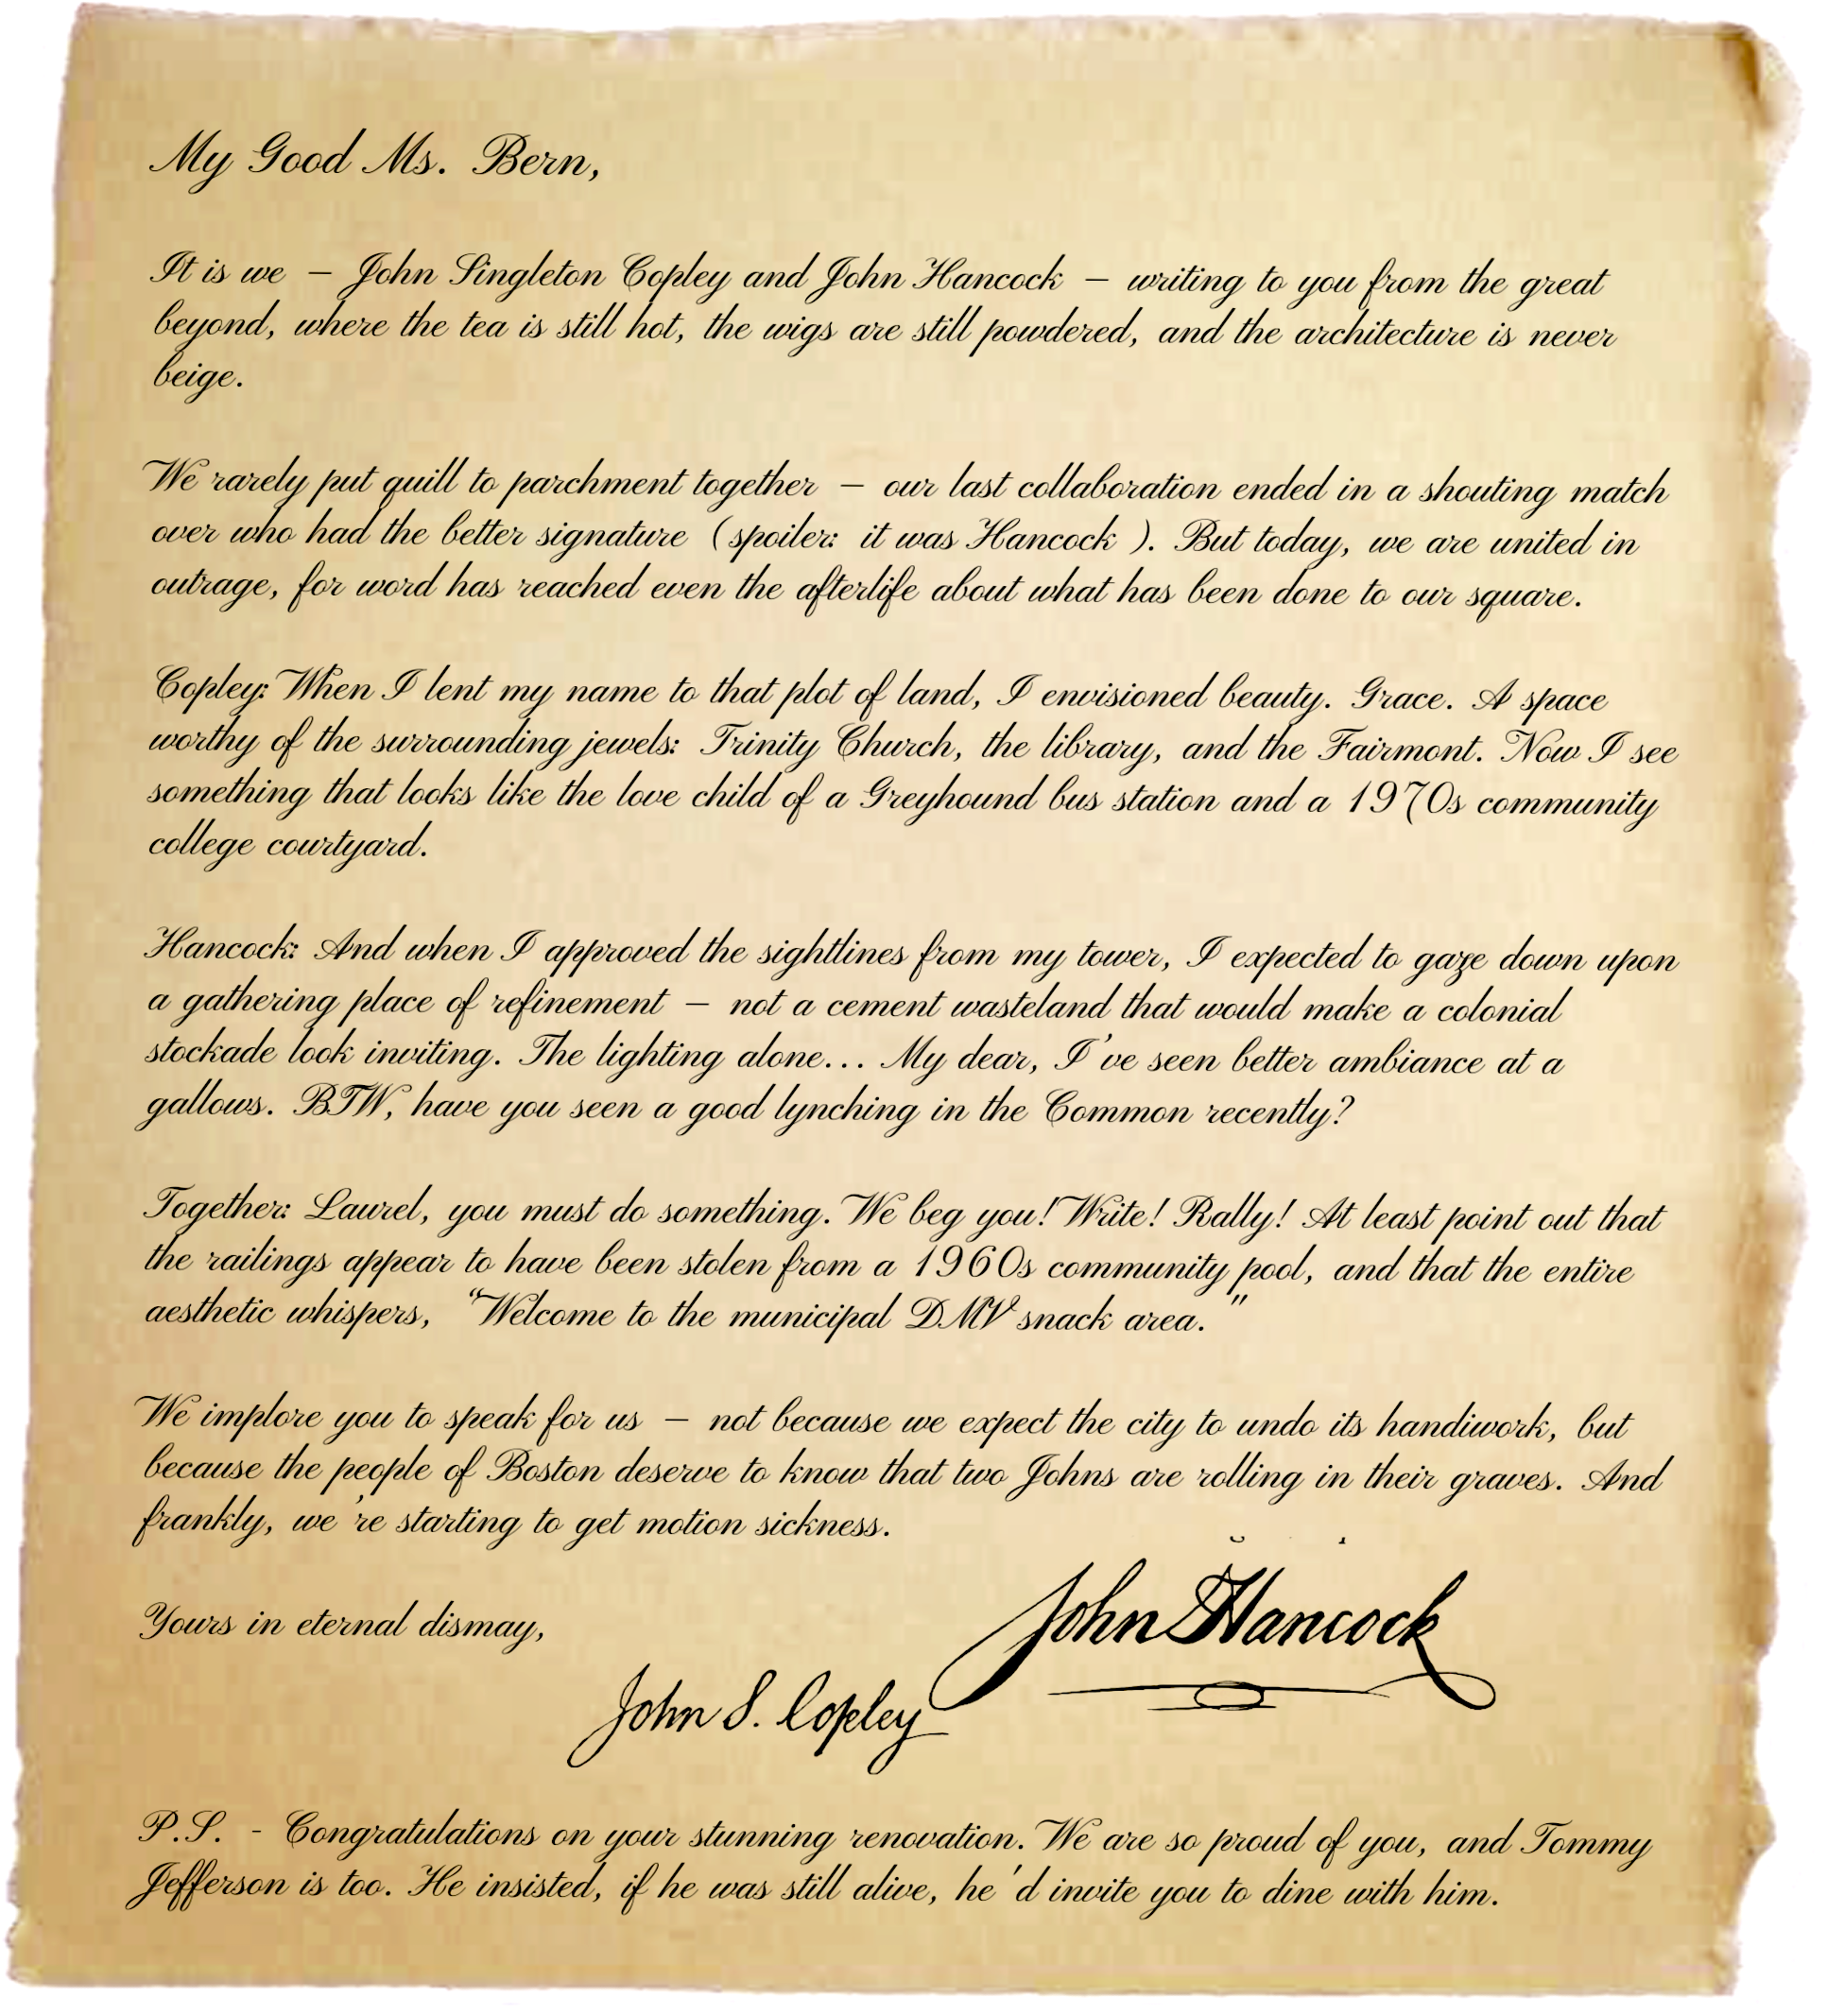 My Good Ms. Bern,
It is we – John Singleton Copley and John Hancock – writing to you from the great
beyond, where the tea is still hot, the wigs are still powdered, and the architecture is never
beige.
We rarely put quill to parchment together – our last collaboration ended in a shouting match
over who had the better signature (spoiler: it was Hancock ). But today, we are united in
outrage, for word has reached even the afterlife about what has been done to our square.
Copley: When I lent my name to that plot of land, I envisioned beauty. Grace. A space
worthy of the surrounding jewels: Trinity Church, the library, and the Fairmont. Now I see
something that looks like the love child of a Greyhound bus station and a 1970s community
college courtyard.
Hancock: And when I approved the sightlines from my tower, I expected to gaze down upon
a gathering place of refinement – not a cement wasteland that would make a colonial
stockade look inviting. The lighting alone… My dear, I've seen better ambiance at a
gallows. BTW, have you seen a good lynching in the Common recently?
Together: Laurel, you must do something. We beg you! Write! Rally! At least point out that
the railings appear to have been stolen from a 1960s community pool, and that the entire
aesthetic whispers, "Welcome to the municipal DMV snack area."
We implore you to speak for us – not because we expect the city to undo its handiwork, but
because the people of Boston deserve to know that two Johns are rolling in their graves. And
frankly, we're starting to get motion sickness.
Yours in eternal dismay,
John Hancock
John S. Copley
P.S. - Congratulations on your stunning renovation. We are so proud of you, and Tommy
Jefferson is too. He insisted, if he was still alive, he'd invite you to dine with him.